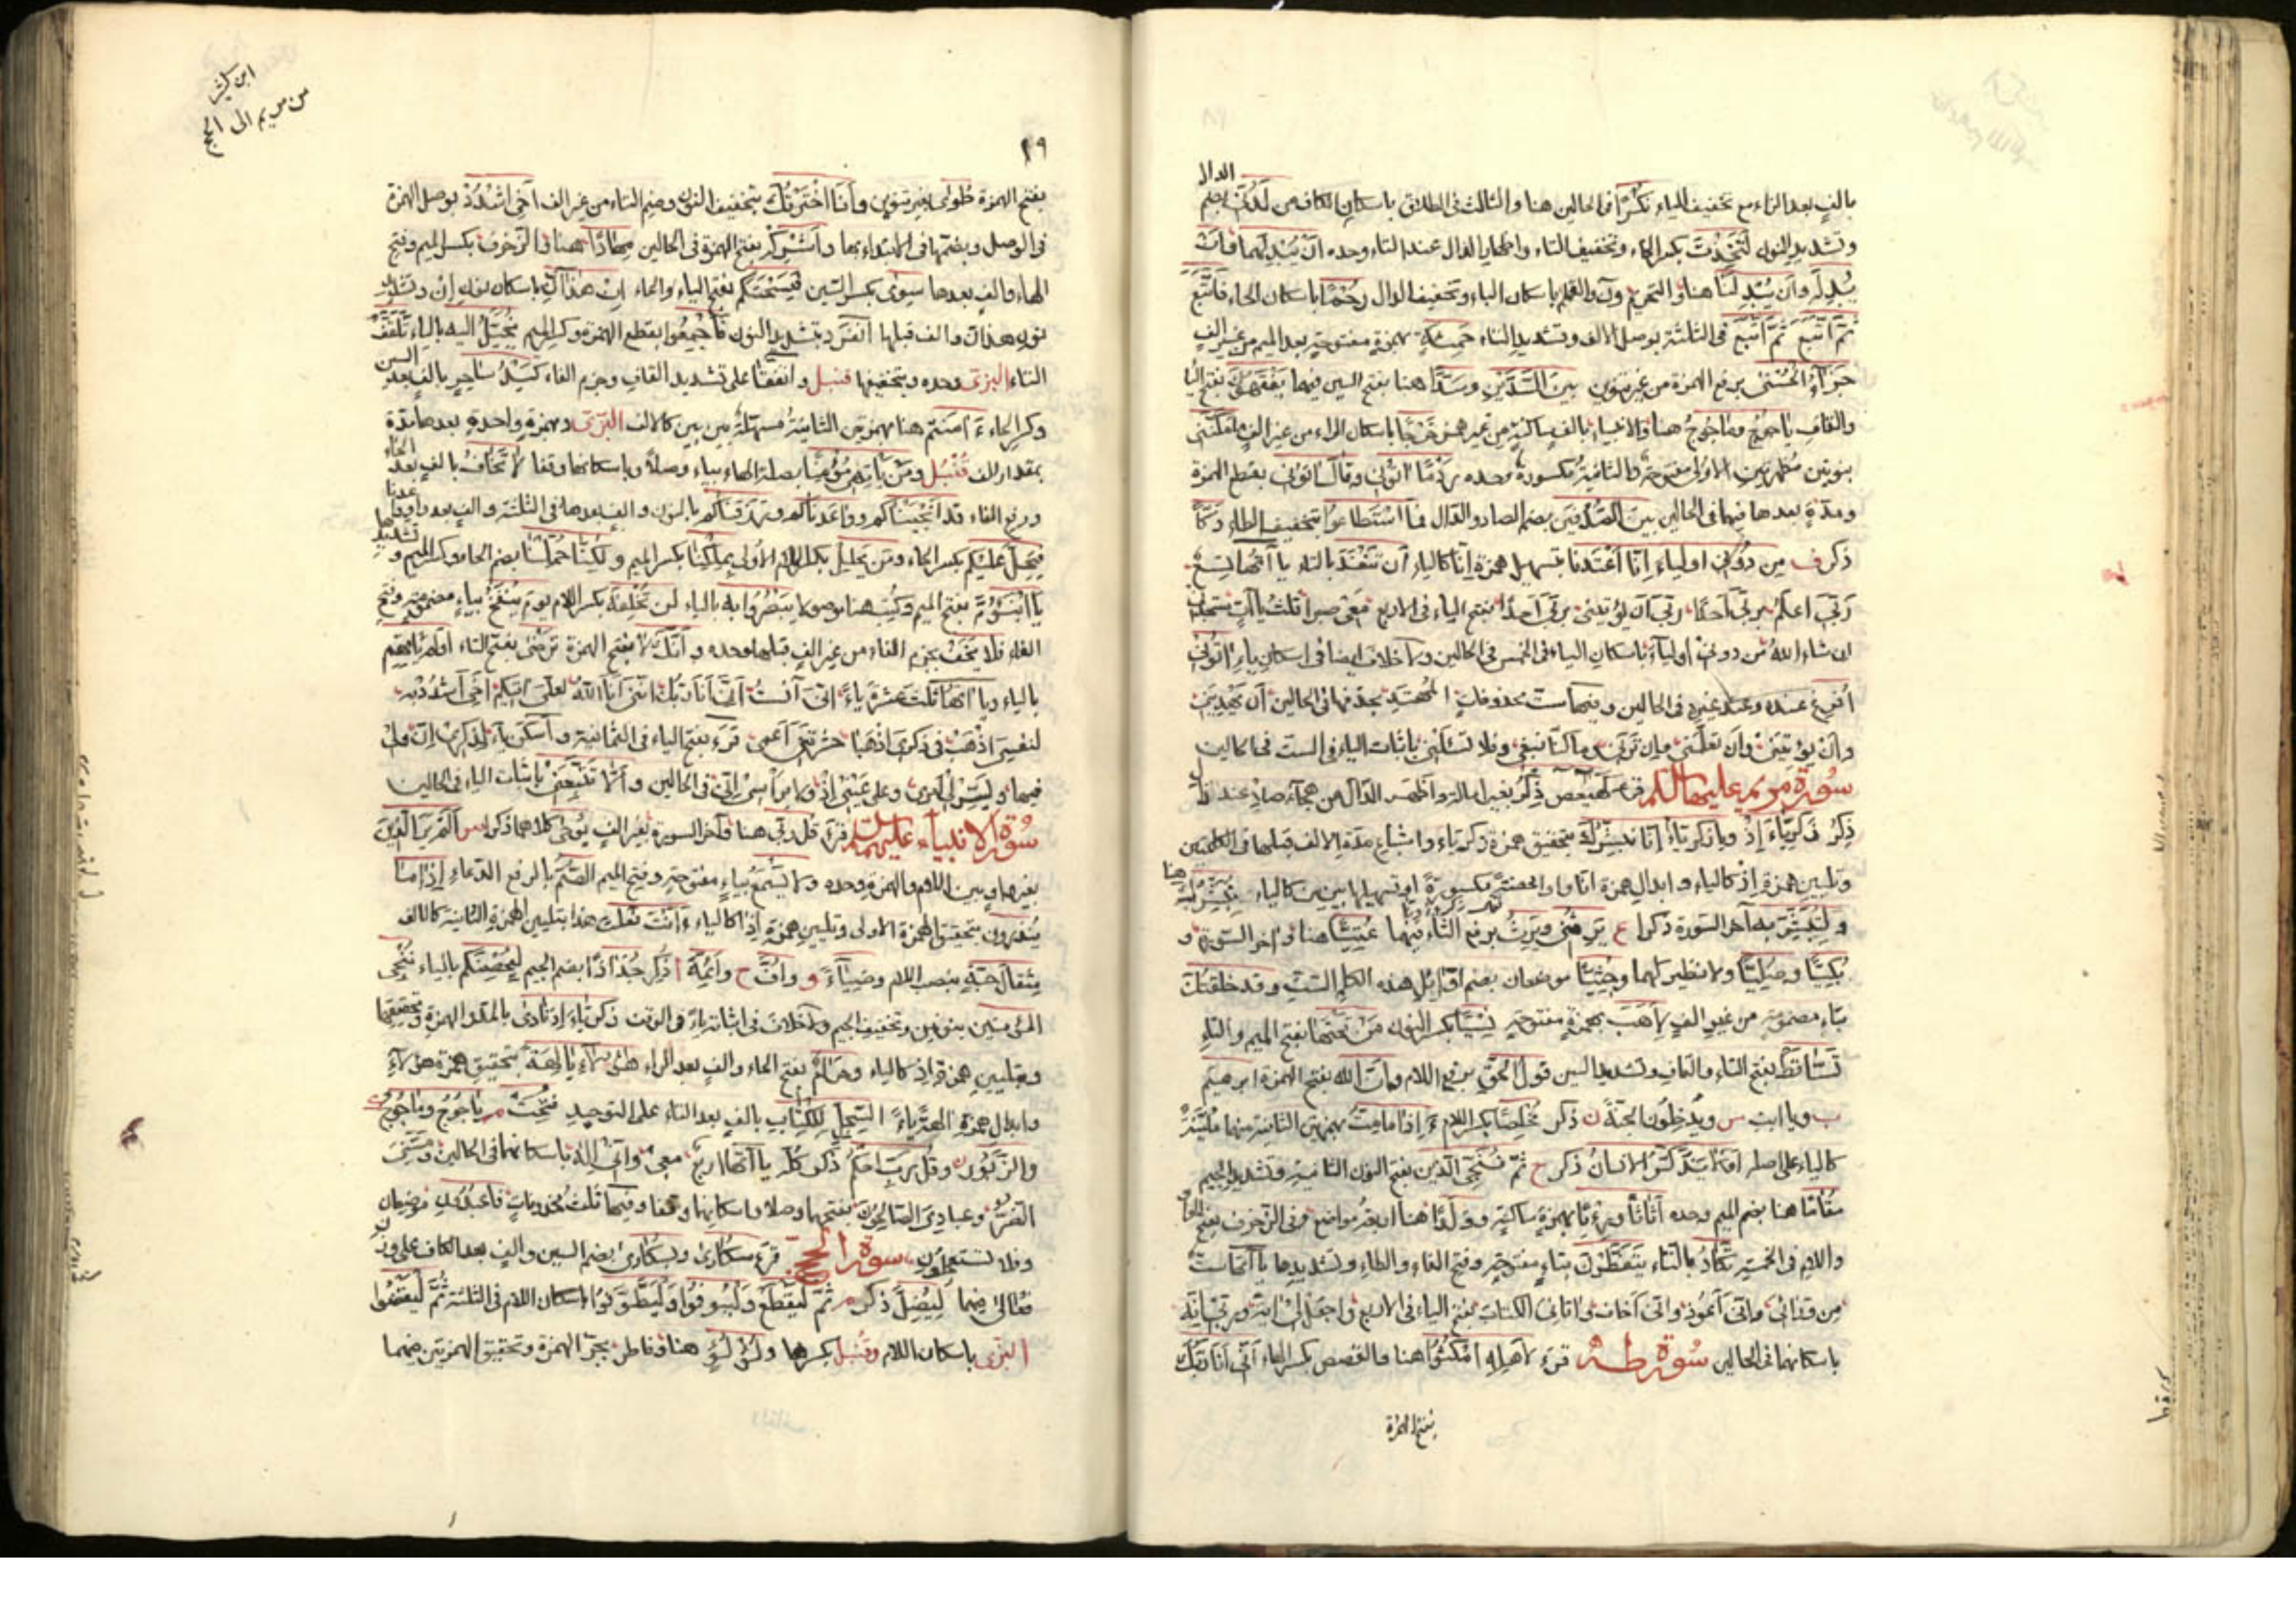 الدال
بالف بعد الزاء مع تخفيف الياء نكرا في الحالين هنا والثالث في الطلاق باسكان الكاف من لدني بضم
وتشديد النون لتخذت بكسر الخاء وتخفيف التاء واظهار الذال عند التاء وحده ان يبدلهما فان
يبدله وان يبدلنا هنا والتحريم ون والقلم باسكان الباء وتخفيف الدال رحما باسكان الحاء فاتبع
ثم اتبع ثم اتبع في الثلثة بوصل الالف وتشديد التاء حمئة بهمزة مفتوحة بعد الميم من غير الف
جزاء الحسنى برفع الهمزة من غير تنوين بين السدين وسدا هنا بفتح السين فيهما يفقهون بفتح اليا
والقاف ياجوج وماجوج هنا والانبياء بالف ساكنة من غير همز خرجا باسكان الراء من غير الف مكنني
بنونين مظهرتين الاولى مفتوحة والثانية مكسورة وحده ردما اتوني وقال اتوني بقطع الهمزة
ومدة بعدها فيهما في الحالين بين الصدفين بضم الصاد والدال فما استطاعوا بتخفيف الطاء دكا
ذكر ف من دوني اولياء انا اعتدنا بتسهيل همزة انا كالياء ان تنفد بالتاء يا اتها تسع
ربي اعلم بربي احدا ربي ان يؤتيني بربي احدا بفتح الياء في الاربع معي صبرا ثلث يا آت ستجدني
ان شاء الله من دوني اولياء باسكان الياء في الخمس في الحالين ولا خلاف ايضا في اسكان ياء اتوني
افرغ عنده وعند غيره في الحالين وفيها ست محذوفات المهتد بحذفها في الحالين ان يهديني
وان يؤتيني وان تعلمني وان ترني وما كنا نبغي وفلا تسئلني باثبات الياء في الست في الحالين
سورة مريم عليها السلم قرء كهيعص ذكر بغير امالة واظهر الدال من هجاء صاد عند ذال
ذكر زكرياء اذ ويا زكرياء انا نبشرك بتحقيق همزة زكرياء واشباع مدة الالف قبلها في الكلمتين
وتليين همزة اذ كالياء وابدال همزة انا واوا محضة مكسورة او تسهيلها بين بين كالياء نبشرك هنا
ولتبشر به آخر السورة ذكرا ع يرثني ويرث برفع الثاء فيهما عتيا هنا واخر السورة و
بكيا وصليا ولا نظير لهما وجثيا موضعان بضم اوايل هذه الكلم الست وقد خلقتك
بتاء مضمومة من غير الف لاهب بهمزة مفتوحة نسيا بكسر النون من تحتها بفتح الميم والتاء
تساقط بفتح التاء والقاف وتشديد السين قول الحق برفع اللام وان الله بفتح الهمزة ابرهيم
ب ويا ابت س ويدخلون الجنة ن ذكر مخلصا بكسر اللام ءاذا ما مت بهمزتين الثانية منهما ملينة
كالياء على اصله اولا يذكر الانسان ذكر ح ثم ننجي الذين بفتح النون الثانية وتشديد الجيم
مقاما هنا بضم الميم وحده اثاثا ورءيا بهمزة ساكنة وولدا هنا اربعة مواضع وفي الزخرف بفتح الواو
واللام في الخمسة تكاد بالتاء يتفطرن بتاء مفتوحة وفتح الفاء والطاء وتشديدها يا اتها ست
من ورائي واني اعوذ واني اخاف واتاني الكتاب بفتح الياء في الاربع واجعل لي اية وربي انه
باسكانهما في الحالين سورة طه قرء لاهله امكثوا هنا والقصص بكسر الهاء اني انا ربك
بفتح الهمزة
ابن كثير
من مريم الى الحج
٢٩
بفتح الهمزة طوى بغير تنوين وانا اخترتك بتخفيف النون وضم التاء من غير الف اخي اشدد بوصل الهمزة
في الوصل وبضمها في الابتداء بها واشركه بفتح الهمزة في الحالين مهادا هنا والزخرف بكسر الميم وفتح
الهاء والف بعدها سوى بكسر السين فيسحتكم بفتح الياء والحاء ان هذان باسكان نون ان وتشديد
نون هذان والف قبلها انفرد بتشديد النون فاجمعوا بقطع الهمزة وكسر الميم يخيل اليه بالياء تلقف
التاء البزي وحده وبتخفيفها قنبل واتفقا على تشديد القاف وجزم الفاء كيد ساحر بالف بعد السين
وكسر الحاء ءامنتم هنا بهمزتين الثانية مسهلة بين بين كالالف البزي وبهمزة واحدة بعدها مدة
بمقدار الف قنبل ومن ياته مؤمنا بصلة الهاء بياء وصلا وباسكانها وقفا لا تخاف بالف بعد الخاء
ورفع الفاء قد انجيناكم وواعدناكم ورزقناكم بالنون والف بعدها في الثلثة والف بعد واو واعدنا
فيحل عليكم بكسر الحاء ومن يحلل بكسر اللام الاولى بملكنا بكسر الميم ولكنا حملنا بضم الحاء وكسر الميم وتشديدها
يا ابنؤم بفتح الميم وكتب هنا موصولا يبصروا به بالياء لن تخلفه بكسر اللام يوم ينفخ بياء مضمومة وفتح
الفاء فلا يخف بجزم الفاء من غير الف قبلها وحده وانك لا بفتح الهمزة ترضى بفتح التاء اولم ياتهم
بالياء ويا اتها ثلث عشرة ياء اني آنست اني انا ربك انني انا الله لعلي اتيكم اخي اشدد به
لنفسي اذهب في ذكري اذهبا حشرتني اعمى قرء بفتح الياء في الثمانية واسكن ياء لذكري ان ولي
فيها ويسر لي امري وعلى عيني اذ ولا براسي اني في الحالين والا تتبعني باثبات الياء في الحالين
سورة الانبياء عليهم السلم قرء قل ربي هنا وآخر السورة بغير الف يوحى كلاهما ذكرا س الم ير الذين
بغير واو بين اللام والهمزة وحده ولا يسمع بياء مفتوحة وفتح الميم الصم بالرفع الدعاء اذا ما
ينذرون بتحقيق الهمزة الاولى وتليين همزة اذا كالياء ءانت فعلت هذا بتليين الهمزة الثانية كالالف
مثقال حبة بنصب اللام وضياء و واف ح وائمة ا ذكر جذاذا بضم الجيم ليحصنكم بالياء ننجي
المؤمنين بنونين وتخفيف الجيم ولا خلاف في اثبات ياءه في الوقف زكرياء اذ نادى بالمد والهمزة وتحقيقها
وبتليين همزة اذ كالياء وحرام بفتح الحاء والف بعد الراء هؤلاء الهة بتحقيق همزة هؤلاء
وابدال همزة الهة ياء السجل للكتاب بالف بعد التاء على التوحيد فتحت م ياجوج وماجوج
والزبور ن وقل رب احكم ذكر كل يا اتها اربع معي واني اله باسكانهما في الحالين ومسني
الضر وعبادي الصالحون بفتحهما وصلا واسكانها وقفا وفيها ثلث محذوفات فاعبدون موضعان
وفلا تستعجلون سورة الحج قرء سكارى وبسكارى بضم السين والف بعد الكاف على وزن
فعالى فيهما ليضل ذكر م ثم ليقطع وليوفوا وليطوفوا باسكان اللام في الثلثة ثم ليقضوا
البزي باسكان اللام وقنبل بكسرها ولؤلؤ هنا وفاطر بجر الهمزة وتحقيق الهمزتين فيهما